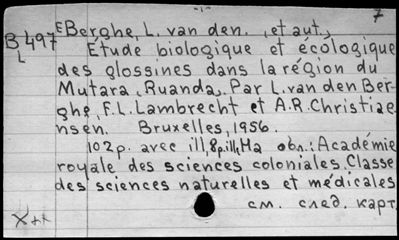 -1-
7
B497
L
E Berghe, L. van den. , et aut.,
Étude biologique et écologique
des glossines dans la région du
Mutara, Ruanda,. Par L. van den Ber-
ghe, F.L. Lambrecht et A.R. Christiae
nsen. Bruxelles, 1956.
102p. avec ill, 8p.ill, На обл.: Académie
royale des sciences coloniales. Classe
des sciences naturelles et médicales
см. след. карт.